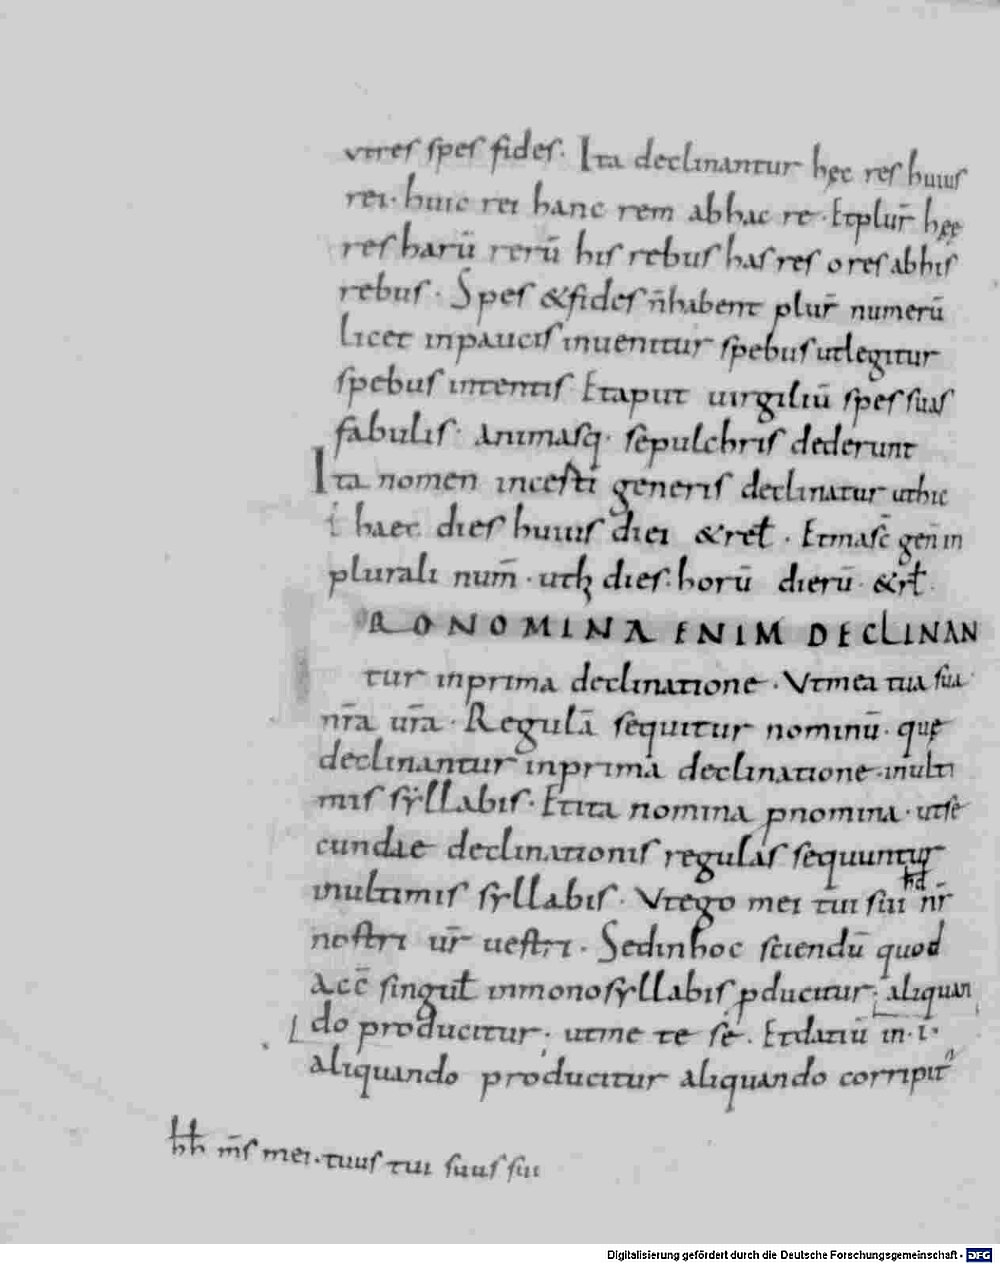 vtres spes fides. Ita declinantur hęc res huius
rei. huic rei hanc rem abhac re. Etplur̄ hęę
res harū rerū his rebus has res o res abhis
rebus. Spes &fides n̄habent plur̄ numerū
licet inpaucis inuenitur spebus utlegitur
spebus intentis Etaput uirgiliū spes suas
fabulis. Animasq· sepulchris dederunt
Ita nomen incesti generis declinatur uthic
ł haec dies huius diei &reł. Etmasc̄ gen̄ in
plurali num̄. utħ dies. horū dierū. &rł.
RONOMINA ENIM DECLINAN
tur inprima declinatione. Vtmea tua sua
nr̄a ur̄a. Regulā sequitur nominū. quę
declinantur inprima declinatione. inulti
mis syllabis. Etita nomina pnomina. utse
cundae declinationis regulas sequuntur
inultimis syllabis. Vtego mei tui sui nr̄
hđ
nostri ur̄ uestri. Sedinhoc sciendū quod
acc̄ singuł inmonosyllabis pducitur; aliquan
do producitur; utme te se. Etdatiū in. i.
aliquando producitur aliquando corripit
hħ m̄s mei. tuus tui suus sui
Digitalisierung gefördert durch die Deutsche Forschungsgemeinschaft - DFG